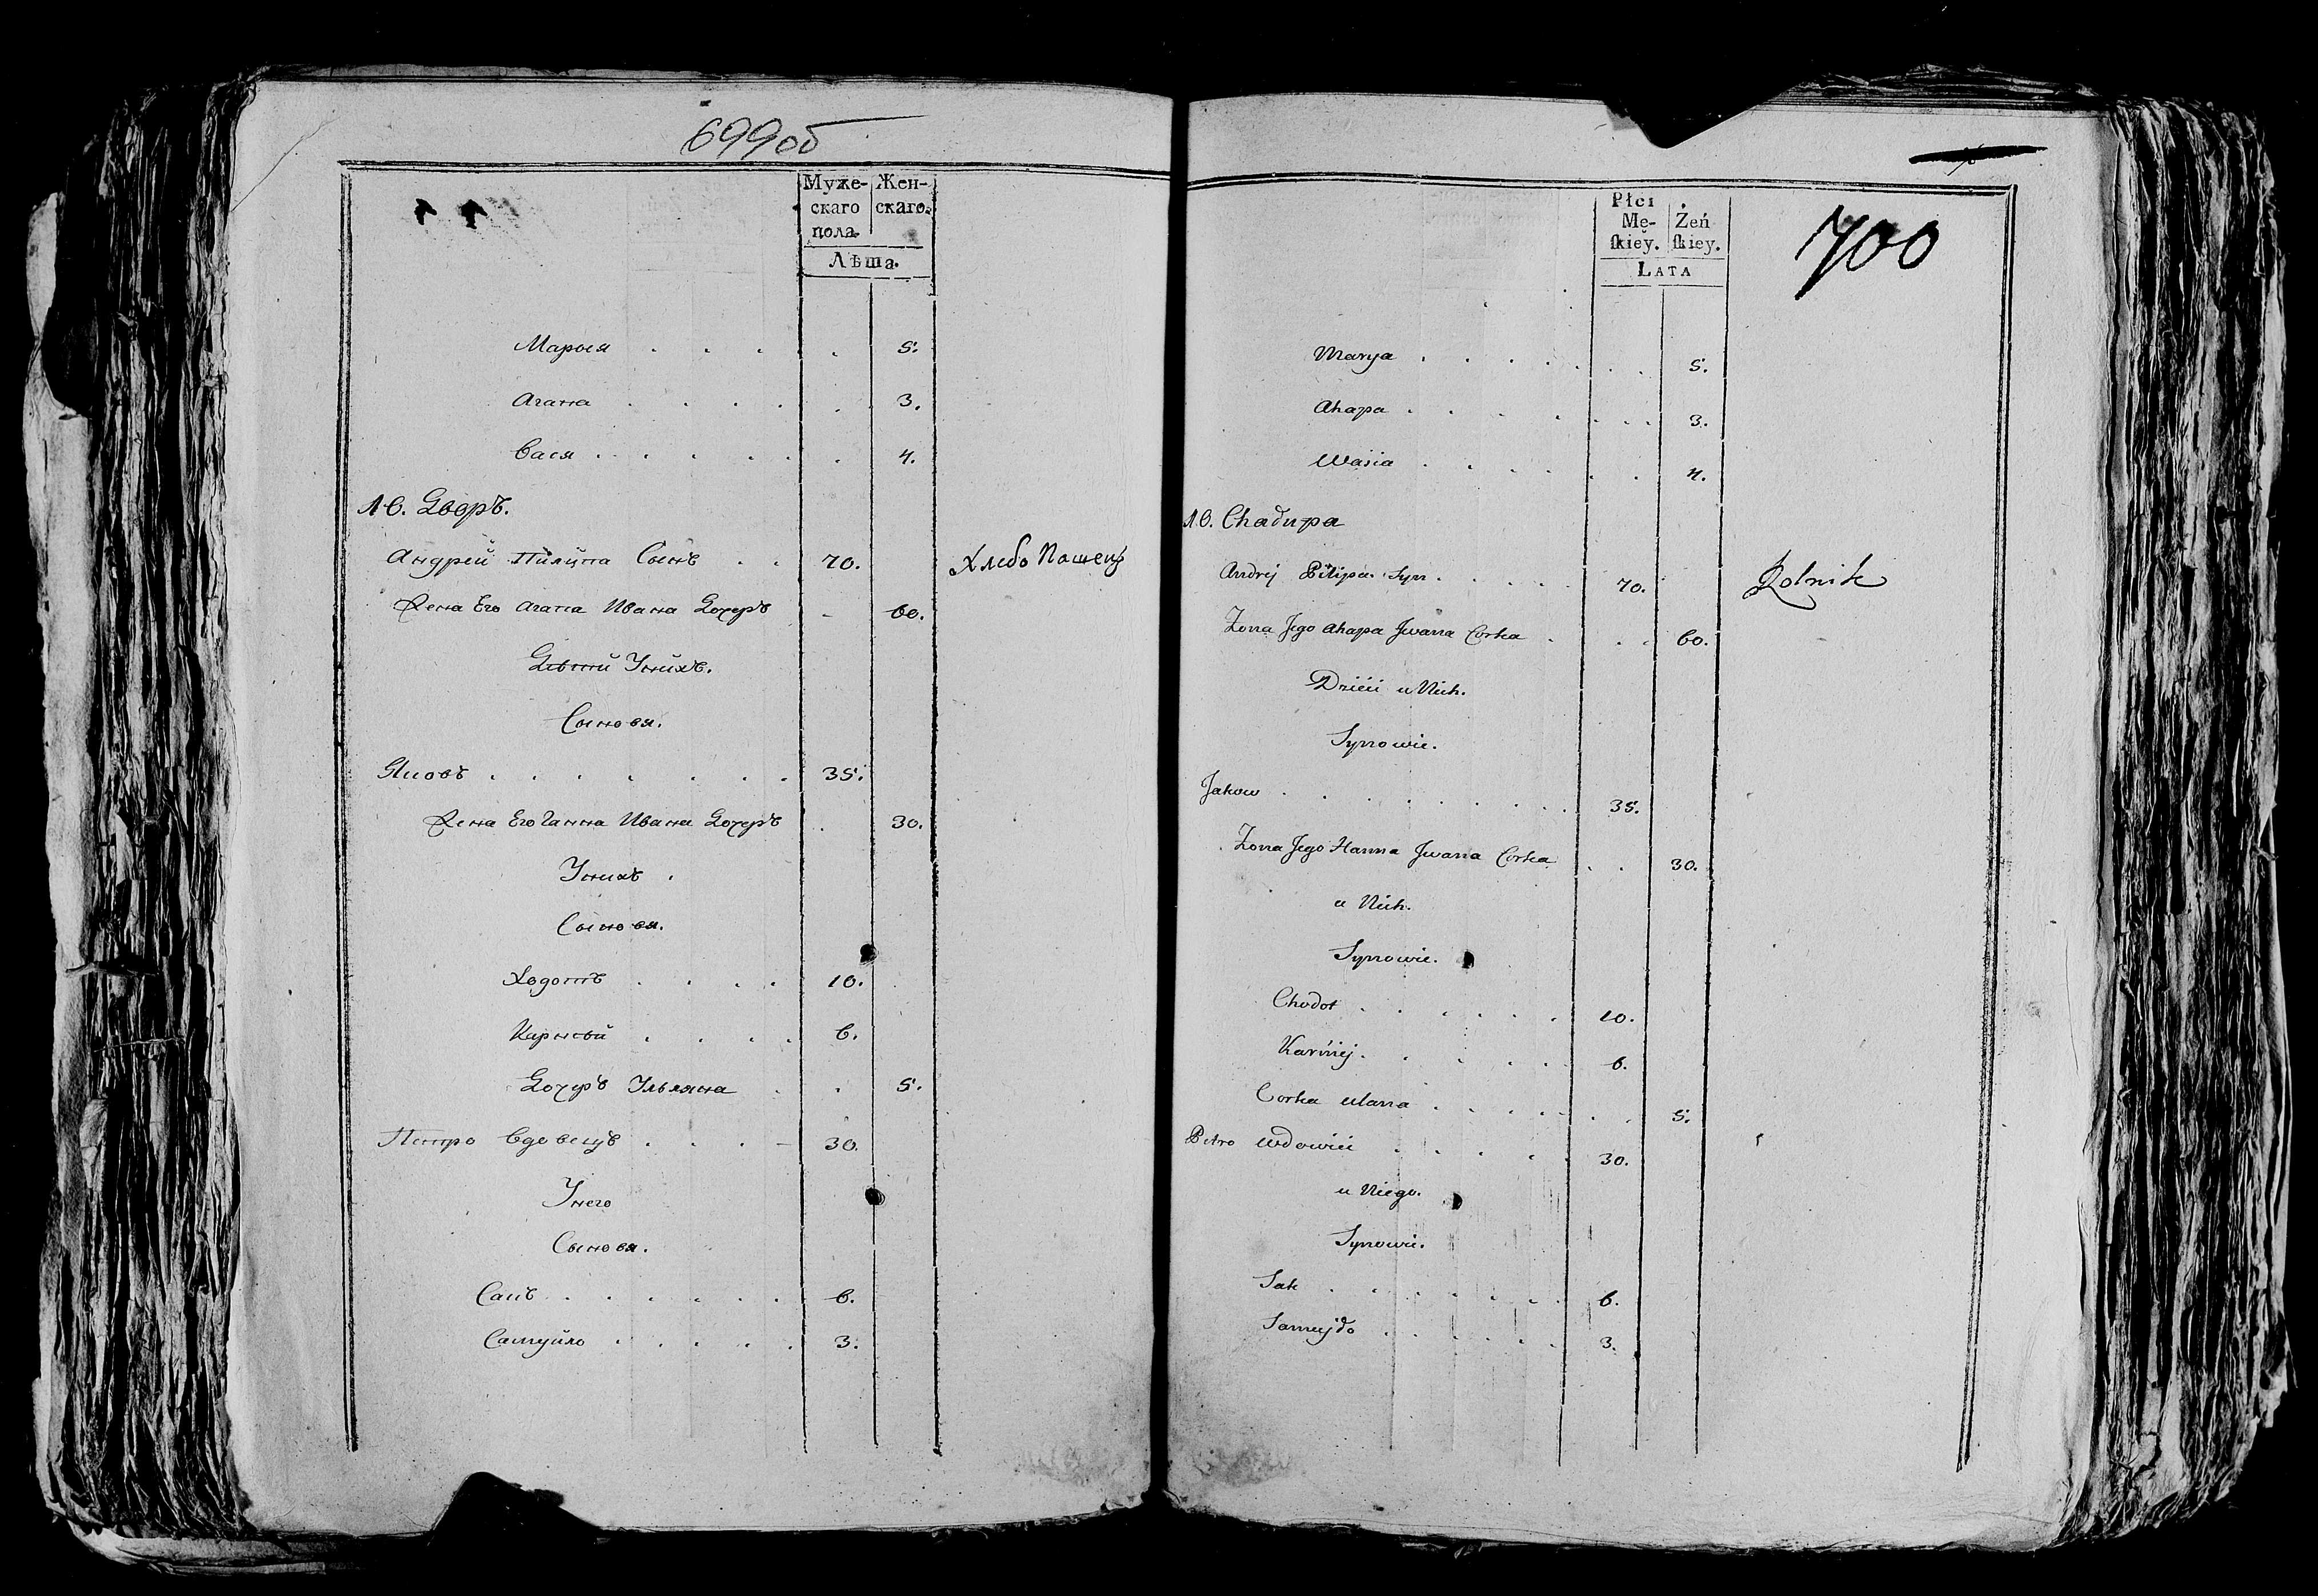 699об
Муже-
скаго
пола.
Жен-
скаго.
Лѣта.
Марыя . . . . . 5.
Агапа . . . . . 3.
Вася . . . . . 4.
10. Дворъ.
Андрей Пилипа Сынъ . . 70. Хлебо Пашецъ
Жена Его Агапа Ивана Дочеръ 60.
Дѣтй Унйхъ.
Сыновя.
Яковъ . . . . . . . 35.
Жена Его Ганна Ивана Дочеръ . 30.
Унихъ .
Сыновя.
Ходотъ . . . . 10.
Карнѣй . . . . 6.
Дочеръ Ульяна . . 5.
Петро Вдовецъ . . . 30.
Унего
Сыновя.
Сакъ . . . . . . 6.
Самуйло . . . . . 3.
700
Płci
Mę-
ſkiey.
Żeń
ſkiey.
LATA
Marya . . . . . . . 5.
Ahapa . . . . . . . 3.
Wasia . . . . . . 4.
10. Chałupa
Andrej Pilipa Syn . . . . . 70. Rolnik
Zona Jego Ahapa Jwana Corka . . . 60.
Dzieci u Nich.
Synowie.
Jakow . . . . . . . . 35.
Zona Jego Hanna Jwana Corka . . 30.
u Nich.
Synowie.
Chodot . . . . . . 10.
Karniej . . . . . . 6.
Corka Ulana . . . . . . 5.
Petro Wdowiec . . . . . 30.
u Niego.
Synowie.
Sak . . . . . . . 6.
Samujło . . . . . 3.